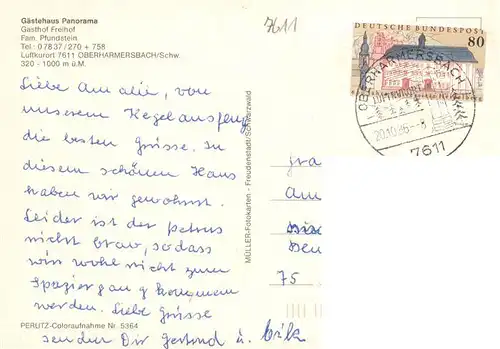 Gästehaus Panorama
Gasthof Freihof
Fam. Pfundstein
Tel. 0 78 37 / 270 + 758
Luftkurort 7611 OBERHARMERSBACH/Schw.
320 - 1000 m ü.M.
7611
DEUTSCHE BUNDESPOST
80
OBERHARMERSBACH
LUFTKURORT
20.10.86-8
7611
Liebe Amalie, von
unserem Kegelausflug
die besten Grüsse. In
diesem schönen Haus
haben wir gewohnt.
Leider ist der Petrus
nicht brav, sodass
wir wohl nicht zum
Spaziergang kommen
werden. Liebe Grüsse
senden Dir Gertrud u. Erik
MÜLLER-Fotokarten - Freudenstadt/Schwarzwald
PERUTZ-Coloraufnahme Nr. 5364
Fra
Am
75